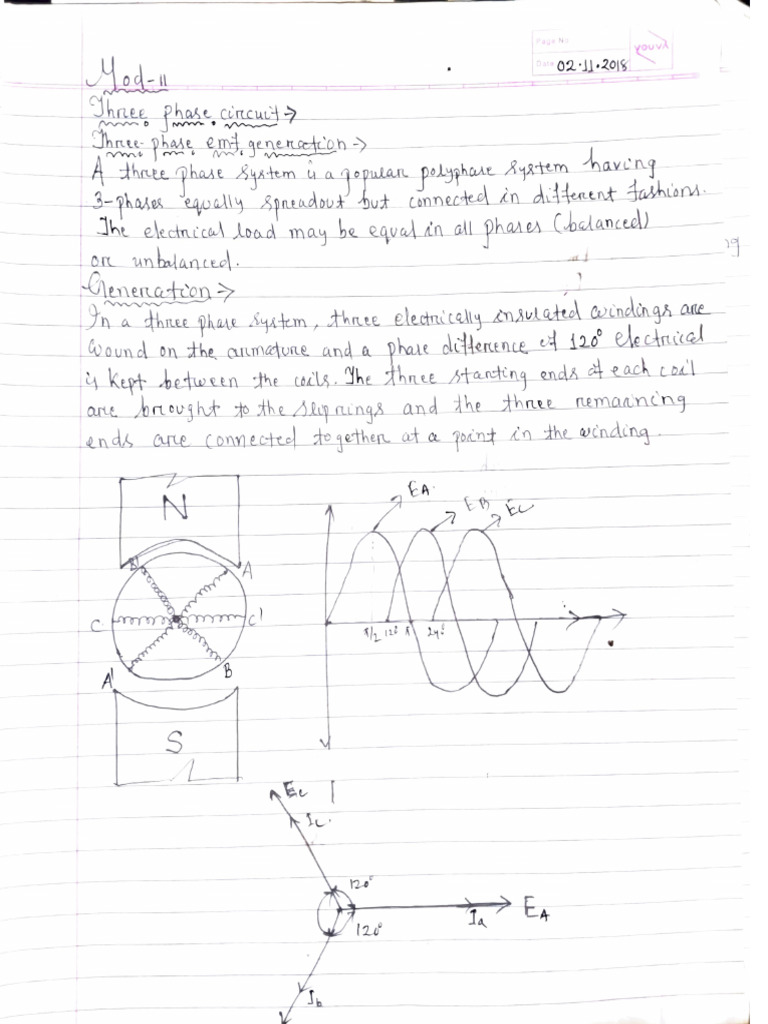 Page No.
Date: 02.11.2018
youva
Mod-II
Three phase circuit →
Three phase emf generation →
A three phase system is a popular polyphase system having
3-phases equally spreadout but connected in different fashions.
The electrical load may be equal in all phases (balanced)
or unbalanced.
Generation →
In a three phase system, three electrically insulated windings are
wound on the armature and a phase difference of 120° electrical
is kept between the coils. The three starting ends of each coil
are brought to the sliprings and the three remaining
ends are connected together at a point in the winding.
N
B'
A
C
C'
A'
B
S
EA.
EB
EC
π/2 120° π 240°
Ec
Ic.
120°
120°
Ia
EA
Ib